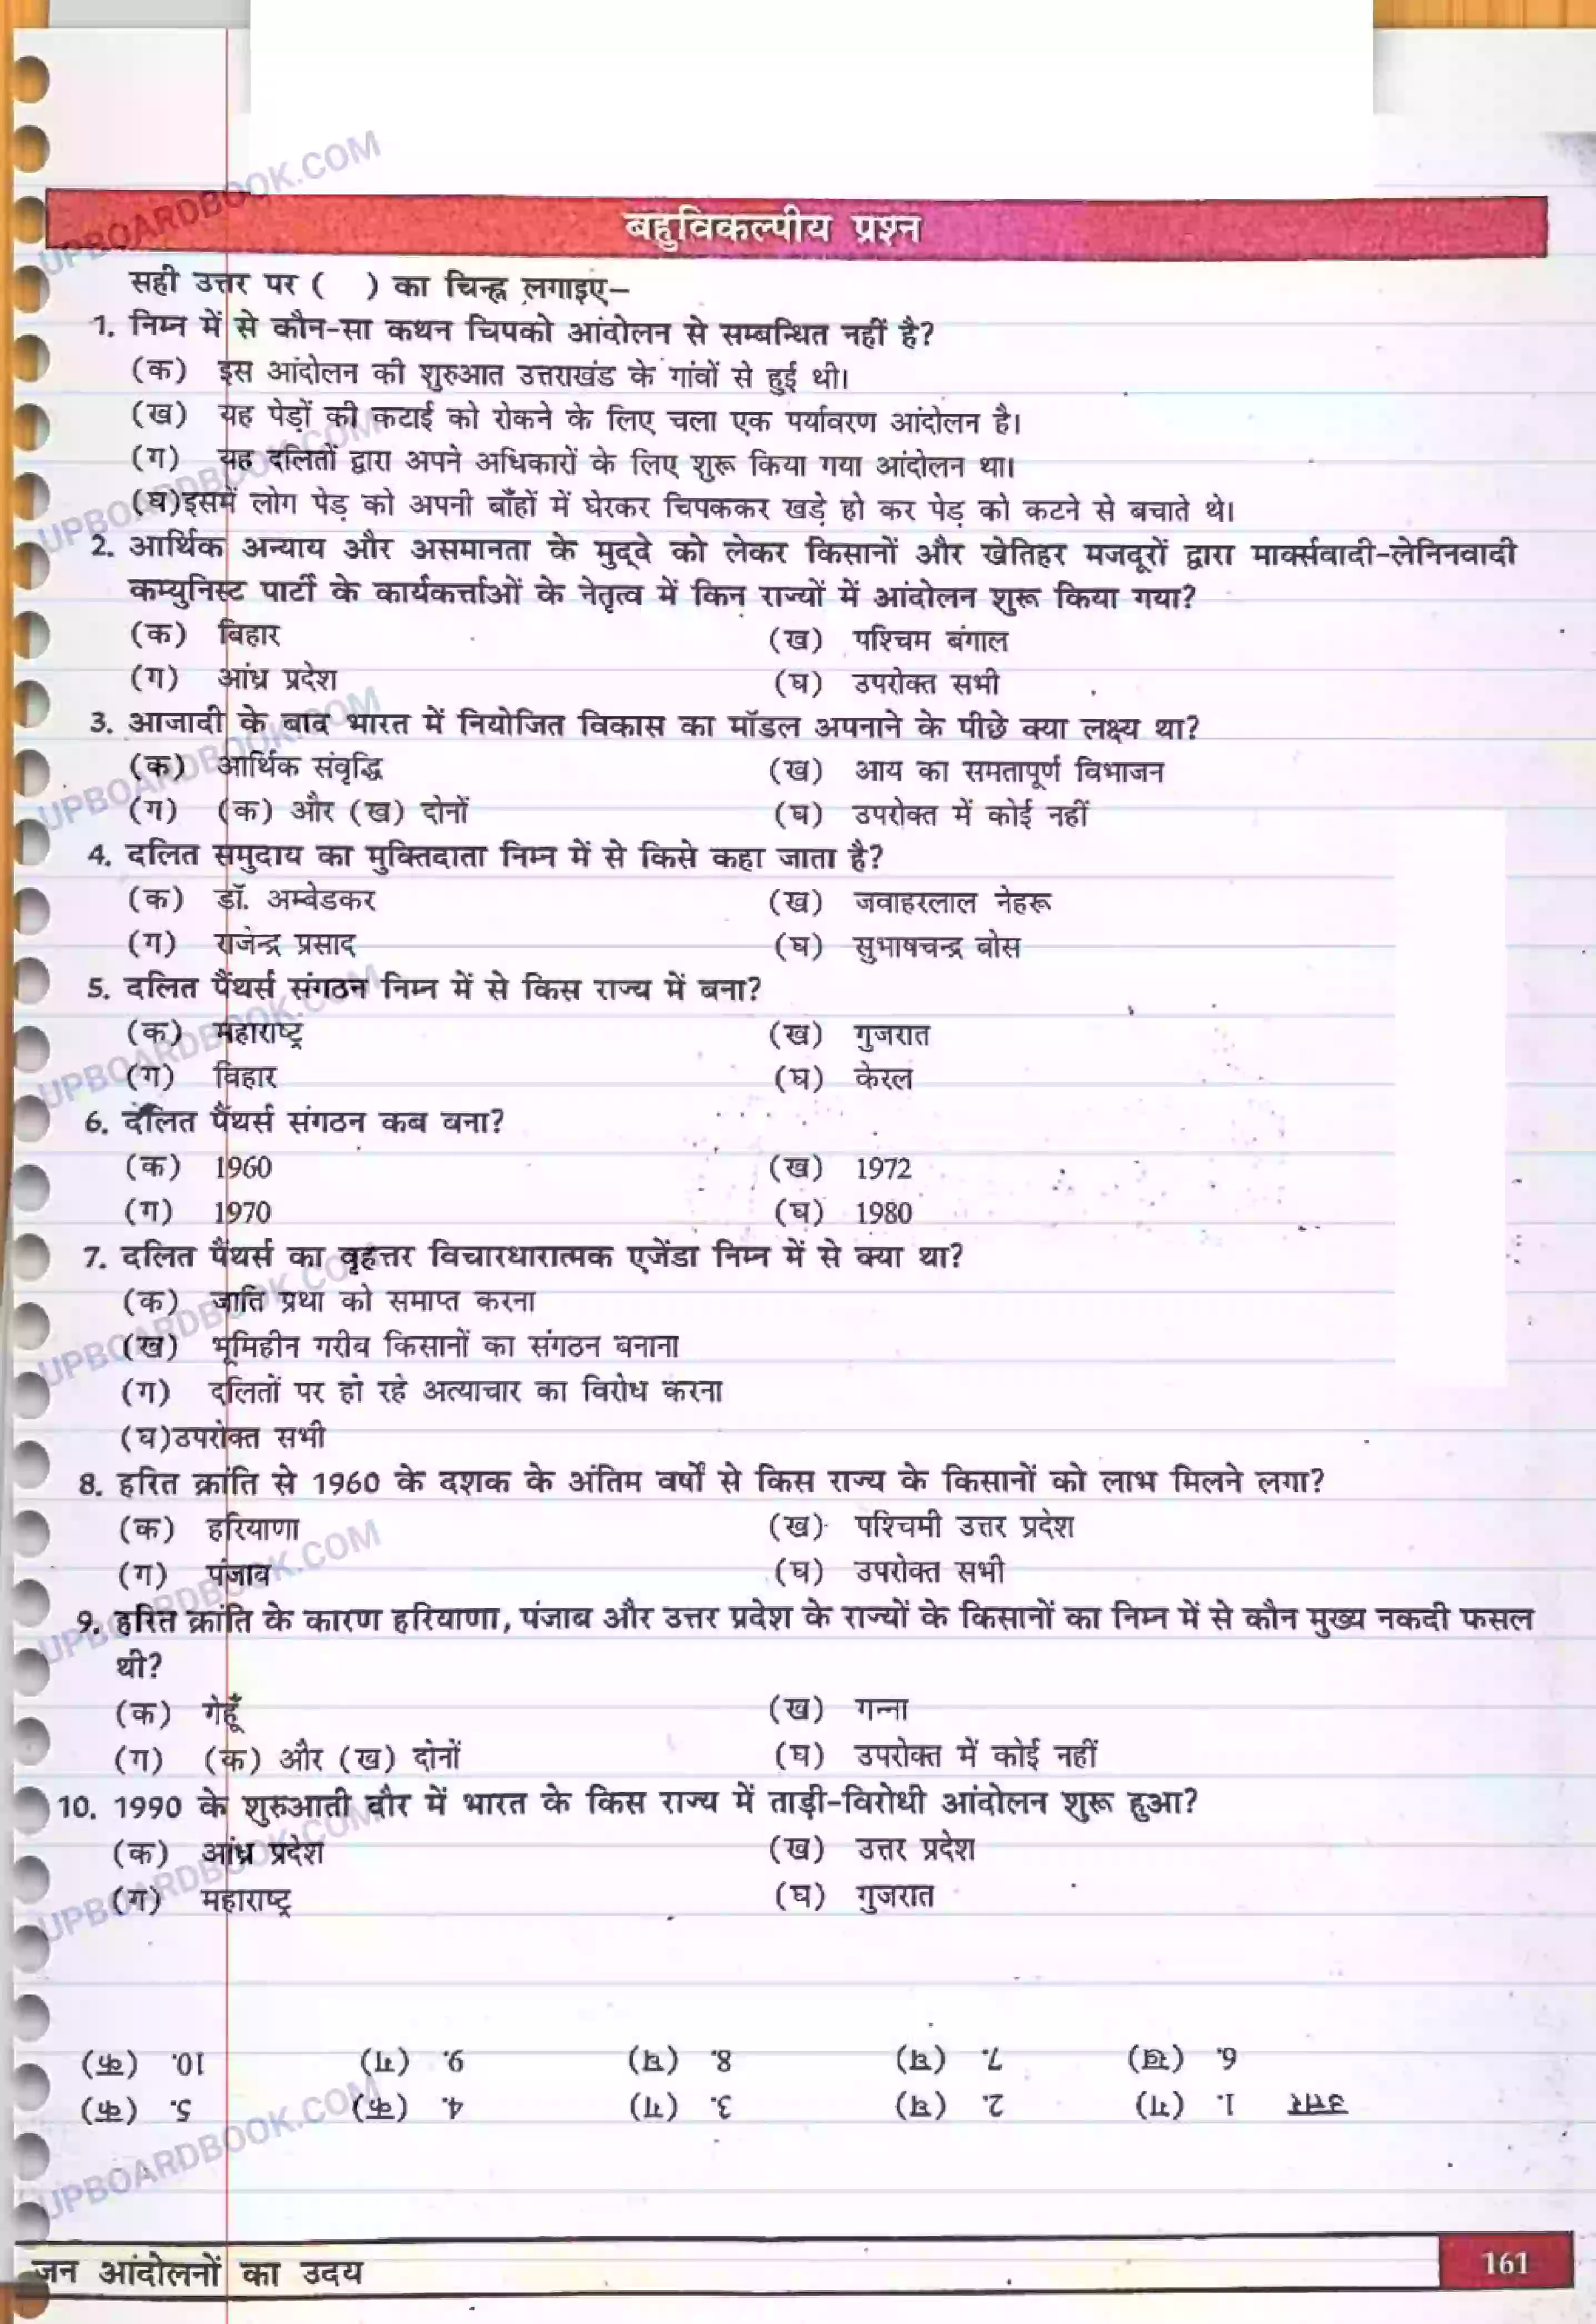 बहुविकल्पीय प्रश्न
सही उत्तर पर ( ) का चिन्ह लगाइए–
1. निम्न में से कौन-सा कथन चिपको आंदोलन से सम्बन्धित नहीं है?
(क) इस आंदोलन की शुरुआत उत्तराखंड के गांवों से हुई थी।
(ख) यह पेड़ों की कटाई को रोकने के लिए चला एक पर्यावरण आंदोलन है।
(ग) यह दलितों द्वारा अपने अधिकारों के लिए शुरू किया गया आंदोलन था।
(घ)इसमें लोग पेड़ को अपनी बाँहों में घेरकर चिपककर खड़े हो कर पेड़ को कटने से बचाते थे।
2. आर्थिक अन्याय और असमानता के मुद्दे को लेकर किसानों और खेतिहर मजदूरों द्वारा मार्क्सवादी-लेनिनवादी
कम्युनिस्ट पार्टी के कार्यकर्त्ताओं के नेतृत्व में किन राज्यों में आंदोलन शुरू किया गया?
(क) बिहार (ख) पश्चिम बंगाल
(ग) आंध्र प्रदेश (घ) उपरोक्त सभी
3. आजादी के बाद भारत में नियोजित विकास का मॉडल अपनाने के पीछे क्या लक्ष्य था?
(क) आर्थिक संवृद्धि (ख) आय का समतापूर्ण विभाजन
(ग) (क) और (ख) दोनों (घ) उपरोक्त में कोई नहीं
4. दलित समुदाय का मुक्तिदाता निम्न में से किसे कहा जाता है?
(क) डॉ. अम्बेडकर (ख) जवाहरलाल नेहरू
(ग) राजेन्द्र प्रसाद (घ) सुभाषचन्द्र बोस
5. दलित पैंथर्स संगठन निम्न में से किस राज्य में बना?
(क) महाराष्ट्र (ख) गुजरात
(ग) बिहार (घ) केरल
6. दलित पैंथर्स संगठन कब बना?
(क) 1960 (ख) 1972
(ग) 1970 (घ) 1980
7. दलित पैंथर्स का वृहत्तर विचारधारात्मक एजेंडा निम्न में से क्या था?
(क) जाति प्रथा को समाप्त करना
(ख) भूमिहीन गरीब किसानों का संगठन बनाना
(ग) दलितों पर हो रहे अत्याचार का विरोध करना
(घ)उपरोक्त सभी
8. हरित क्रांति से 1960 के दशक के अंतिम वर्षों से किस राज्य के किसानों को लाभ मिलने लगा?
(क) हरियाणा (ख) पश्चिमी उत्तर प्रदेश
(ग) पंजाब (घ) उपरोक्त सभी
9. हरित क्रांति के कारण हरियाणा, पंजाब और उत्तर प्रदेश के राज्यों के किसानों का निम्न में से कौन मुख्य नकदी फसल
थी?
(क) गेहूँ (ख) गन्ना
(ग) (क) और (ख) दोनों (घ) उपरोक्त में कोई नहीं
10. 1990 के शुरुआती दौर में भारत के किस राज्य में ताड़ी-विरोधी आंदोलन शुरू हुआ?
(क) आंध्र प्रदेश (ख) उत्तर प्रदेश
(ग) महाराष्ट्र (घ) गुजरात
उत्तर 1. (ग) 2. (घ) 3. (ग) 4. (क) 5. (क)
6. (ख) 7. (घ) 8. (घ) 9. (ग) 10. (क)
जन आंदोलनों का उदय 161
UPBOARDBOOK.COM
UPBOARDBOOK.COM
UPBOARDBOOK.COM
UPBOARDBOOK.COM
UPBOARDBOOK.COM
UPBOARDBOOK.COM
UPBOARDBOOK.COM
UPBOARDBOOK.COM